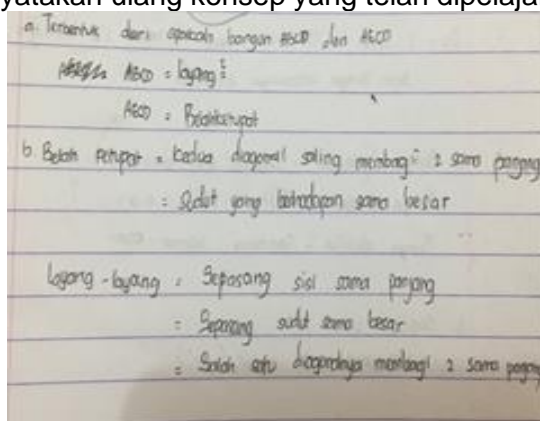 yatakan ulang konsep yang telah dipelaja
a. Terbentuk dari apakah bangun ABCD dan AECD
ABCD = layang²
AECD = Belahketupat
b Belah ketupat = kedua diagonal saling membagi 2 sama panjang
= Sudut yang berhadapan sama besar
Layang-layang = Sepasang sisi sama panjang
= Sepasang sudut sama besar
= Salah satu diagonalnya membagi 2 sama panjang